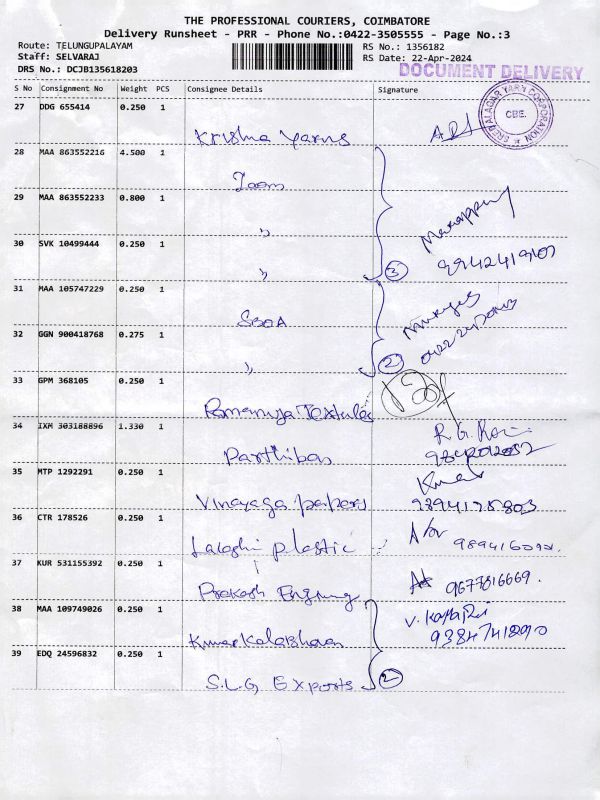 THE PROFESSIONAL COURIERS, COIMBATORE
Delivery Runsheet - PRR - Phone No.:0422-3505555 - Page No.:3
Route: TELUNGUPALAYAM
RS No.: 1356182
Staff: SELVARAJ
RS Date: 22-Apr-2024
DRS No.: DCJB135618203
DOCUMENT DELIVERY
S No Consignment No Weight PCS Consignee Details Signature
27 DDG 655414 0.250 1
SREE BALAGAR YARN CORPORATION
CBE.
Krishna Yarns
28 MAA 863552216 4.500 1
29 MAA 863552233 0.800 1
"
30 SVK 10499444 0.250 1
" 3
31 MAA 105747229 0.250 1
32 GGN 900418768 0.275 1
" 2
33 GPM 368105 0.250 1
Ramanuja Textules
34 IXM 303188896 1.330 1
Parthiban
35 MTP 1292291 0.250 1
Vinayaga papers
36 CTR 178526 0.250 1
plastic
37 KUR 531155392 0.250 1
Prakash 9677816669.
38 MAA 109749026 0.250 1
39 EDQ 24596832 0.250 1
S.L.G Exports 2